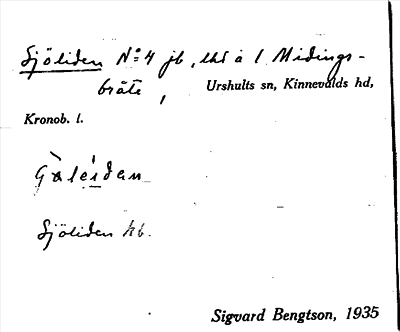 Sjöliden No 4 jb, lht å 1 Midings-
bråte, Urshults sn, Kinnevalds hd,
Kronob. l.
Sjöliden kb.
Sigvard Bengtson, 1935